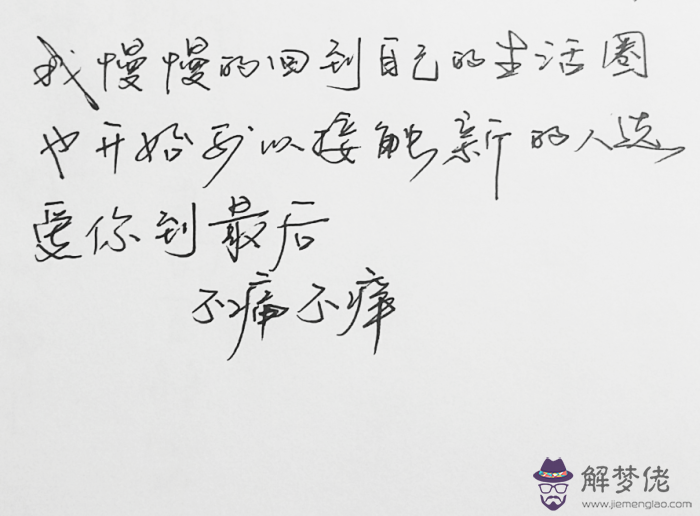 我慢慢的回到自己的生活圈
也开始可以接触新的人选
爱你到最后
不痛不痒
解梦佬
www.jiemenglao.com